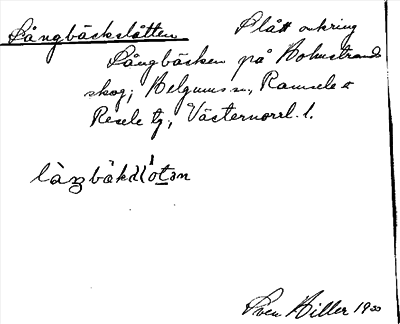 Långbäckslåtten Slått omkring
Långbäcken på Holmstrands
skog; Helgums sn, Ramsele o
Resele tg; Västernorrl. l.
Sven Hiller 1930